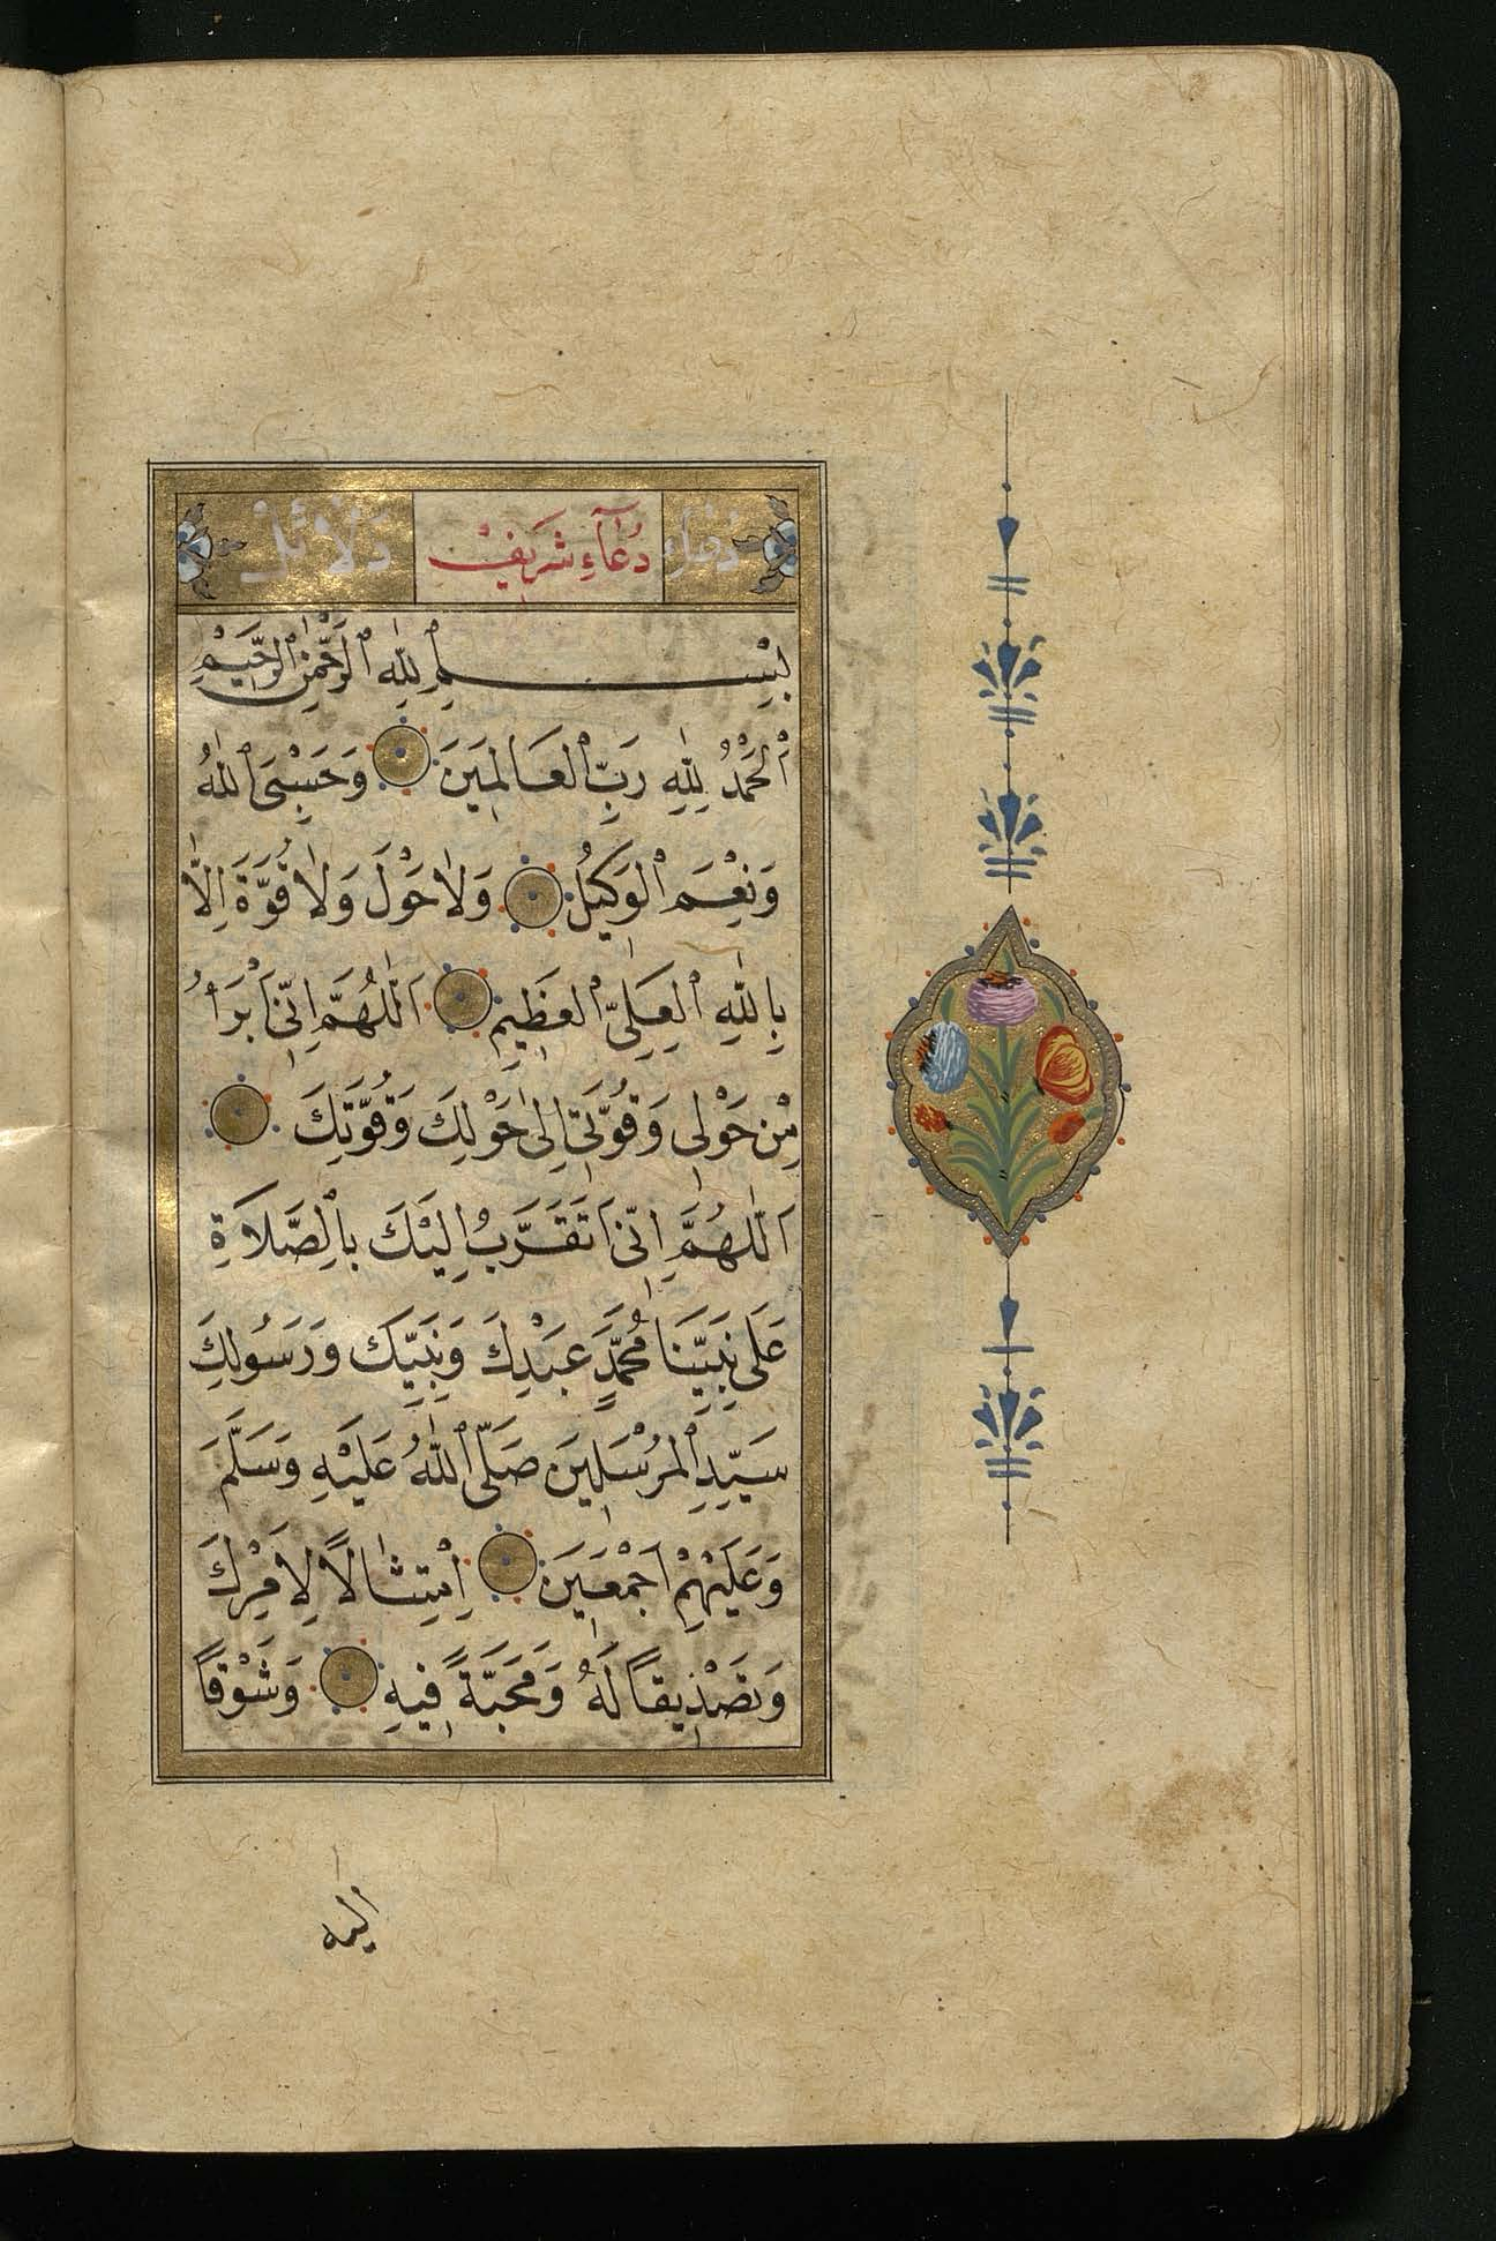 دُعَاءِ دُعَاءِ شَرِيفْ دَلَائِلْ
بِسْمِ اللّٰهِ الرَّحْمٰنِ الرَّحِيمِ
اَلْحَمْدُ لِلّٰهِ رَبِّ الْعَالَمِينَ وَحَسْبِيَ اللّٰهُ
وَنِعْمَ الْوَكِيلُ وَلَا حَوْلَ وَلَا قُوَّةَ اِلَّا
بِاللّٰهِ الْعَلِيِّ الْعَظِيمِ اَللّٰهُمَّ اِنِّى اَبْرَأُ
مِنْ حَوْلِى وَقُوَّتِى اِلٰى حَوْلِكَ وَقُوَّتِكَ
اَللّٰهُمَّ اِنِّى اَتَقَرَّبُ اِلَيْكَ بِالصَّلَاةِ
عَلٰى نَبِيِّنَا مُحَمَّدٍ عَبْدِكَ وَنَبِيِّكَ وَرَسُولِكَ
سَيِّدِ الْمُرْسَلِينَ صَلَّى اللّٰهُ عَلَيْهِ وَسَلَّمَ
وَعَلَيْهِمْ اَجْمَعِينَ اِمْتِثَالًا لِاَمْرِكَ
وَتَصْدِيقًا لَهُ وَمَحَبَّةً فِيهِ وَشَوْقًا
اليه